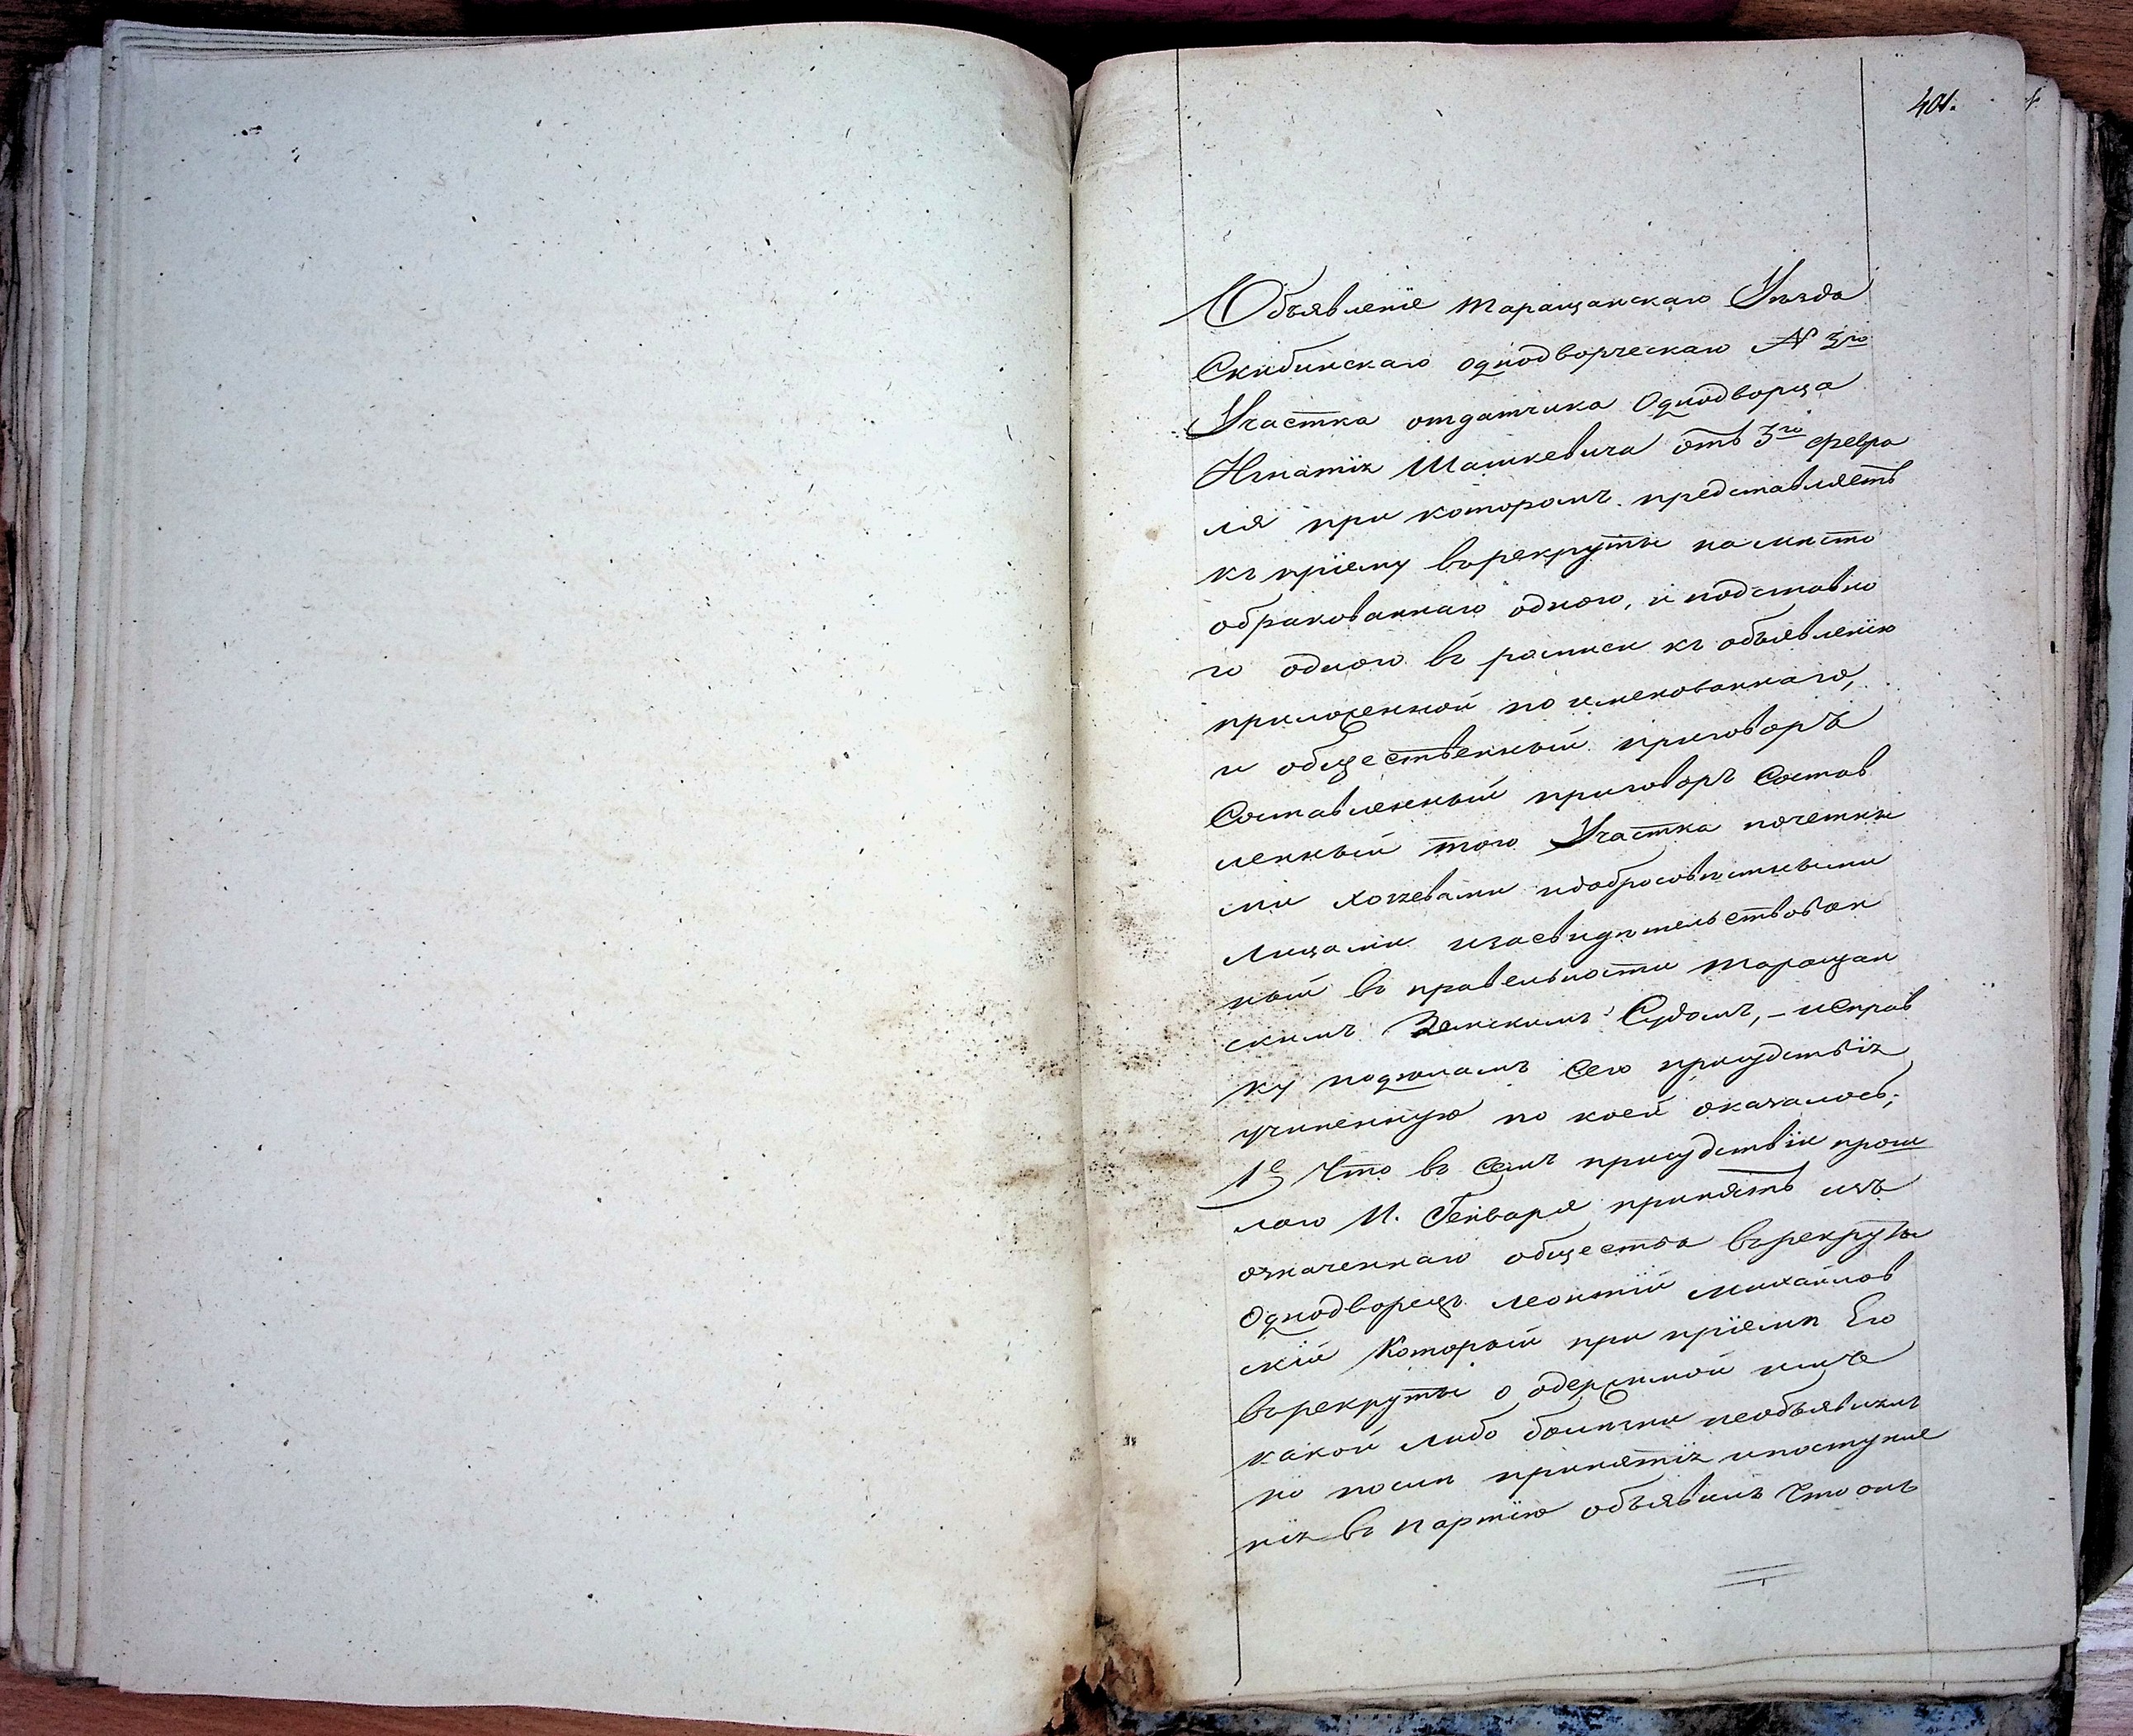 401.
Объявленіе таращанскаго Уѣзда
Скибинскаго однодворческаго № 3го
Участка отдатчика Однодворца
Игнатія Машкевича отъ 3го февра
ля при которомъ представляетъ
къ пріему врекруты на мѣсто
обракованнаго одного, и подставно
го одного въ росписи къ объявленію
приложенной поименованнаго,
и общественный приговоръ
Составленный приговоръ Состав
ленный того Участка почетны
ми хозяевами идобросовѣстными
Лицами изасвидѣтельствован
ный въ правельности таращан
скимъ Земскимъ Судомъ, – исправ
ку подѣламъ Сего присудствія
учиненную по коей оказалось;
1е Что въ Семъ присудствіи прош
лаго 11. Генваря принятъ изъ
означеннаго общества врекруты
Однодворецъ леонтій михайлов
скій Который при пріемѣ Его
врекруты о одержимой имъ
какой либо болѣзни необъявилъ
но послѣ принятія ипоступле
нія въ партію объявилъ Что онъ